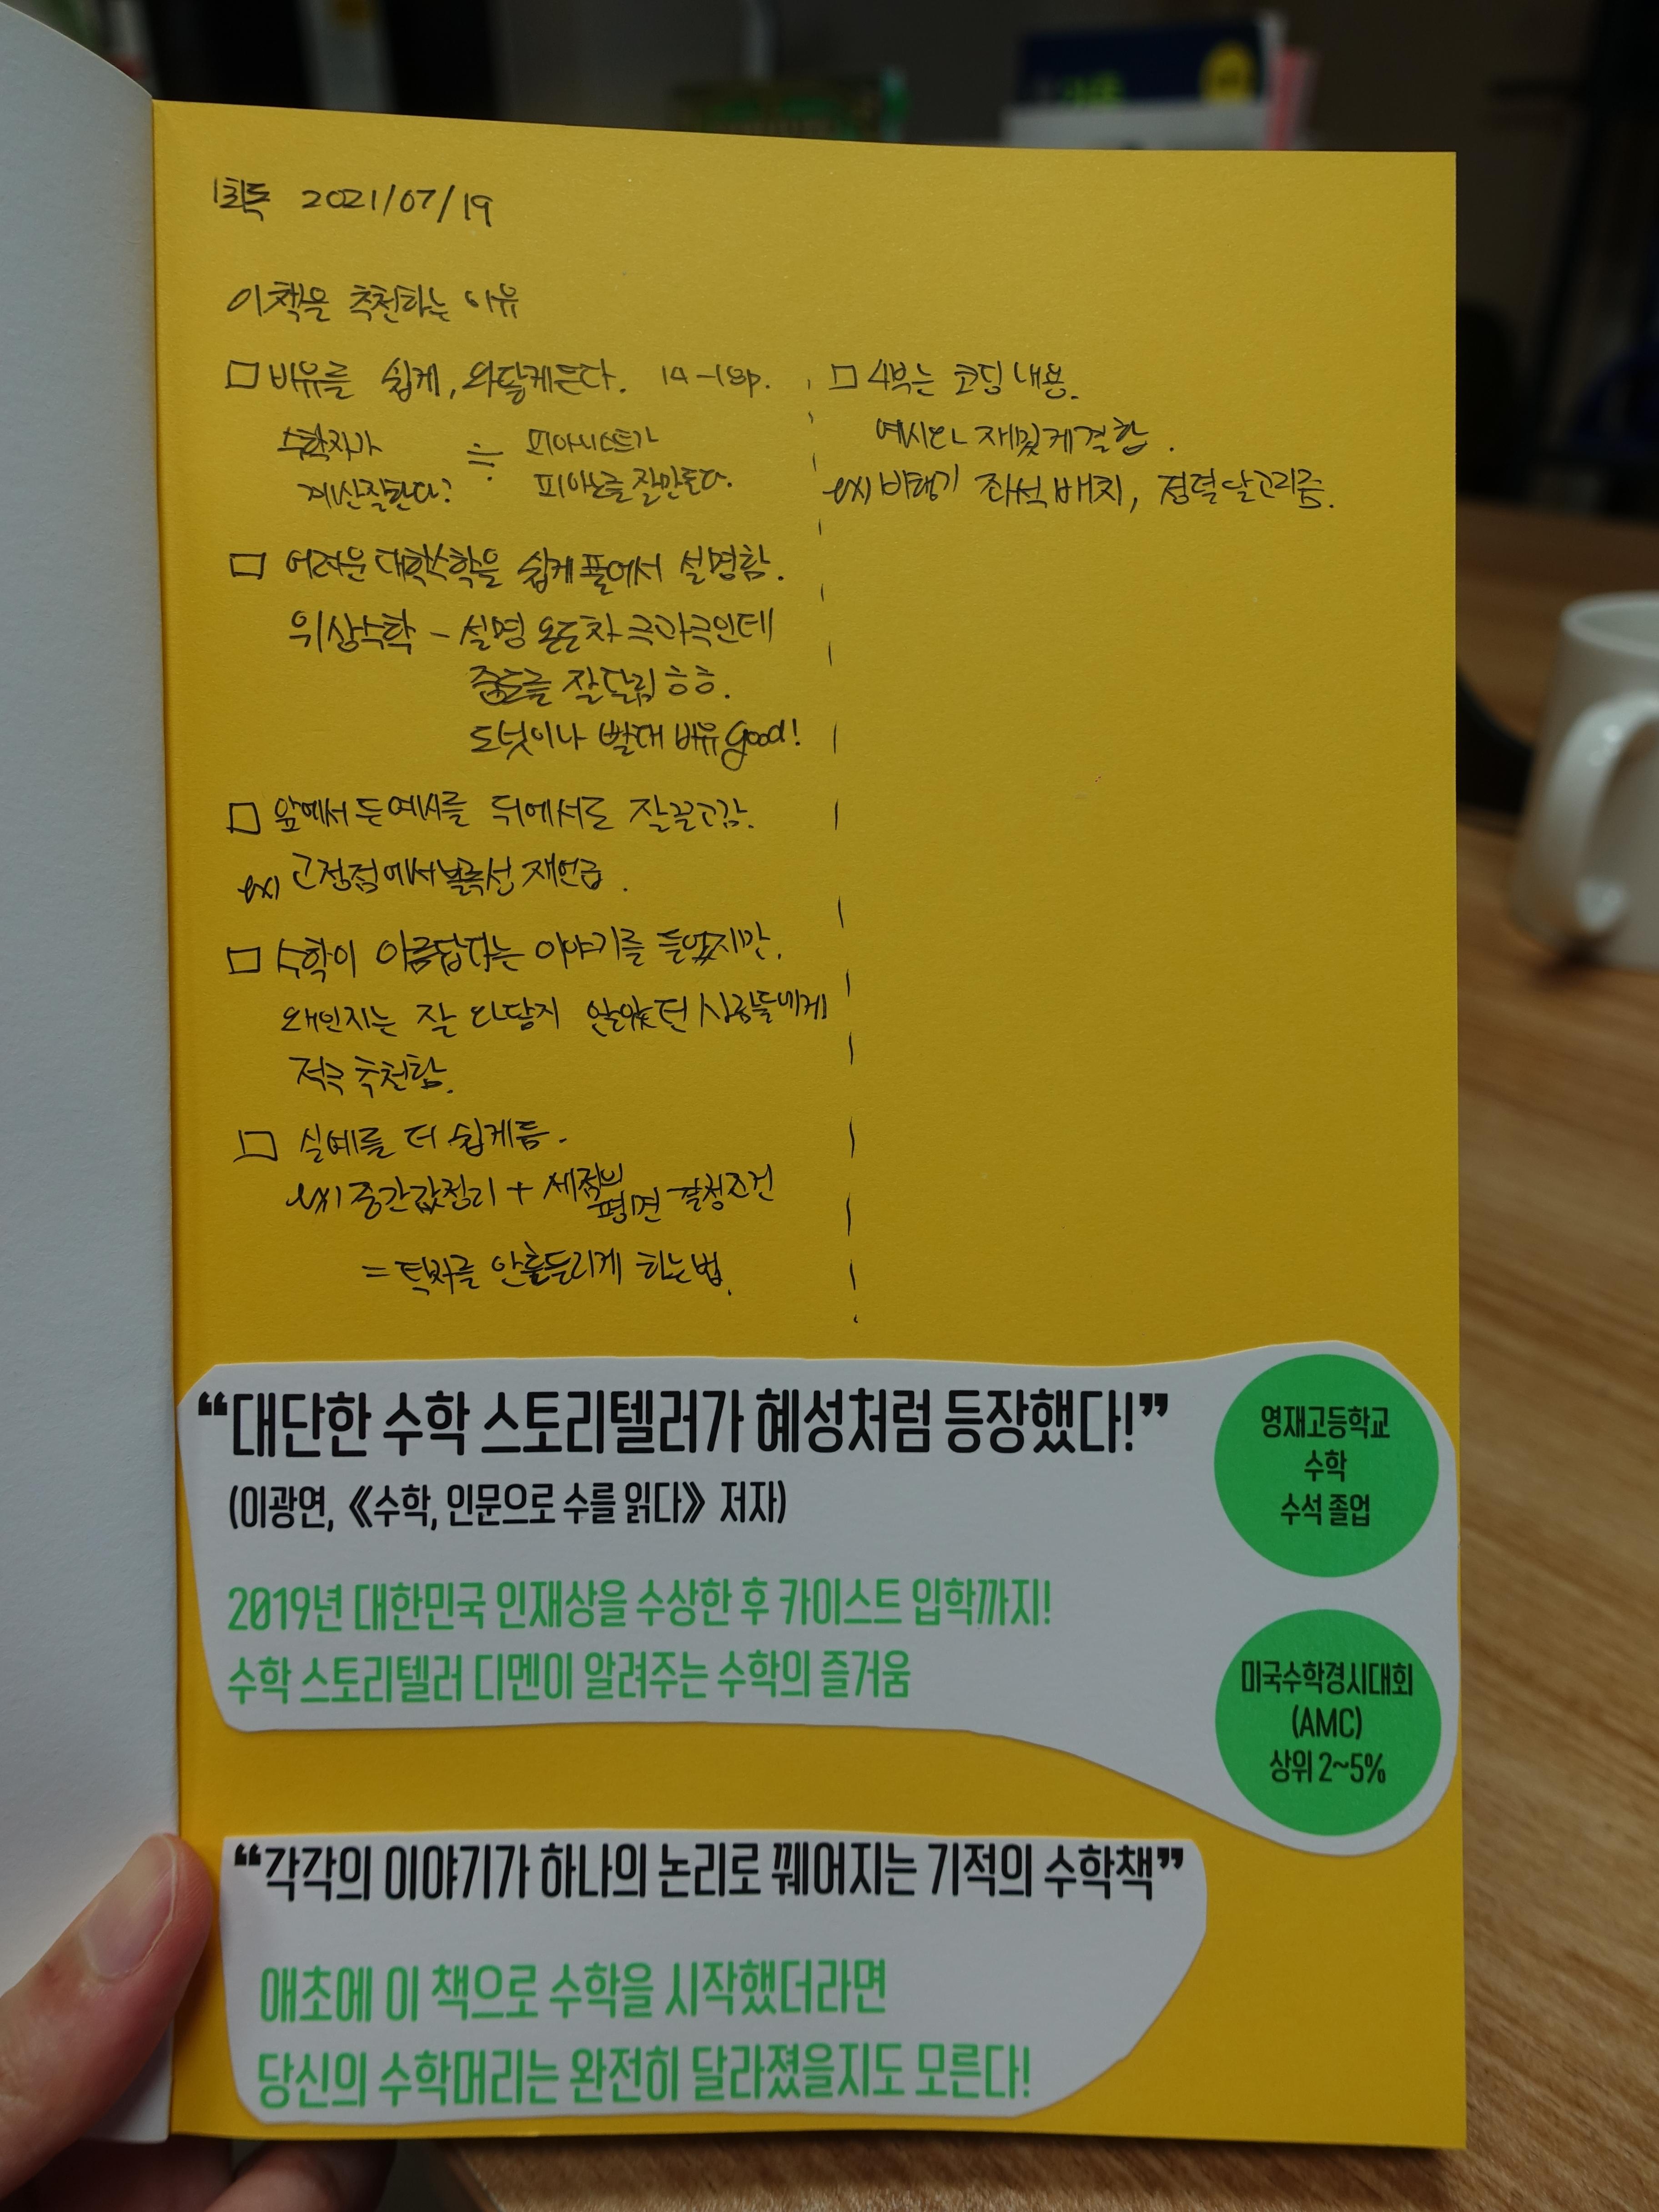 1회독 2021/07/19
이 책을 추천하는 이유
□ 비유를 쉽게, 와닿게 든다. 14-18p.
수학자가
계산잘한다?
≒
피아니스트가
피아노를 잘만든다.
□ 어려운 대학수학을 쉽게 풀어서 설명함.
위상수학 - 설명 온도차 극과극인데
중도를 잘달림 ㅎㅎ.
도넛이나 빨대 비유 good!
□ 앞에서 든 예시를 뒤에서도 잘끌고감.
ex) 고정점에서 재언급.
□ 수학이 아름답다는 이야기를 들었지만,
왜인지는 잘 와닿지 않았던 사람들에게
적극 추천함.
□ 실예를 더 쉽게듬.
ex) 중간값정리 + 세점의
평면 결정조건
= 탁자를 안흔들리게 하는법.
□ 4부는 코딩 내용.
예시와 재밌게결합.
ex) 비행기 좌석 배치, 정렬알고리즘.
“대단한 수학 스토리텔러가 혜성처럼 등장했다!”
(이광연, 《수학, 인문으로 수를 읽다》 저자)
2019년 대한민국 인재상을 수상한 후 카이스트 입학까지!
수학 스토리텔러 디멘이 알려주는 수학의 즐거움
영재고등학교
수학
수석 졸업
미국수학경시대회
(AMC)
상위 2~5%
“각각의 이야기가 하나의 논리로 꿰어지는 기적의 수학책”
애초에 이 책으로 수학을 시작했더라면
당신의 수학머리는 완전히 달라졌을지도 모른다!